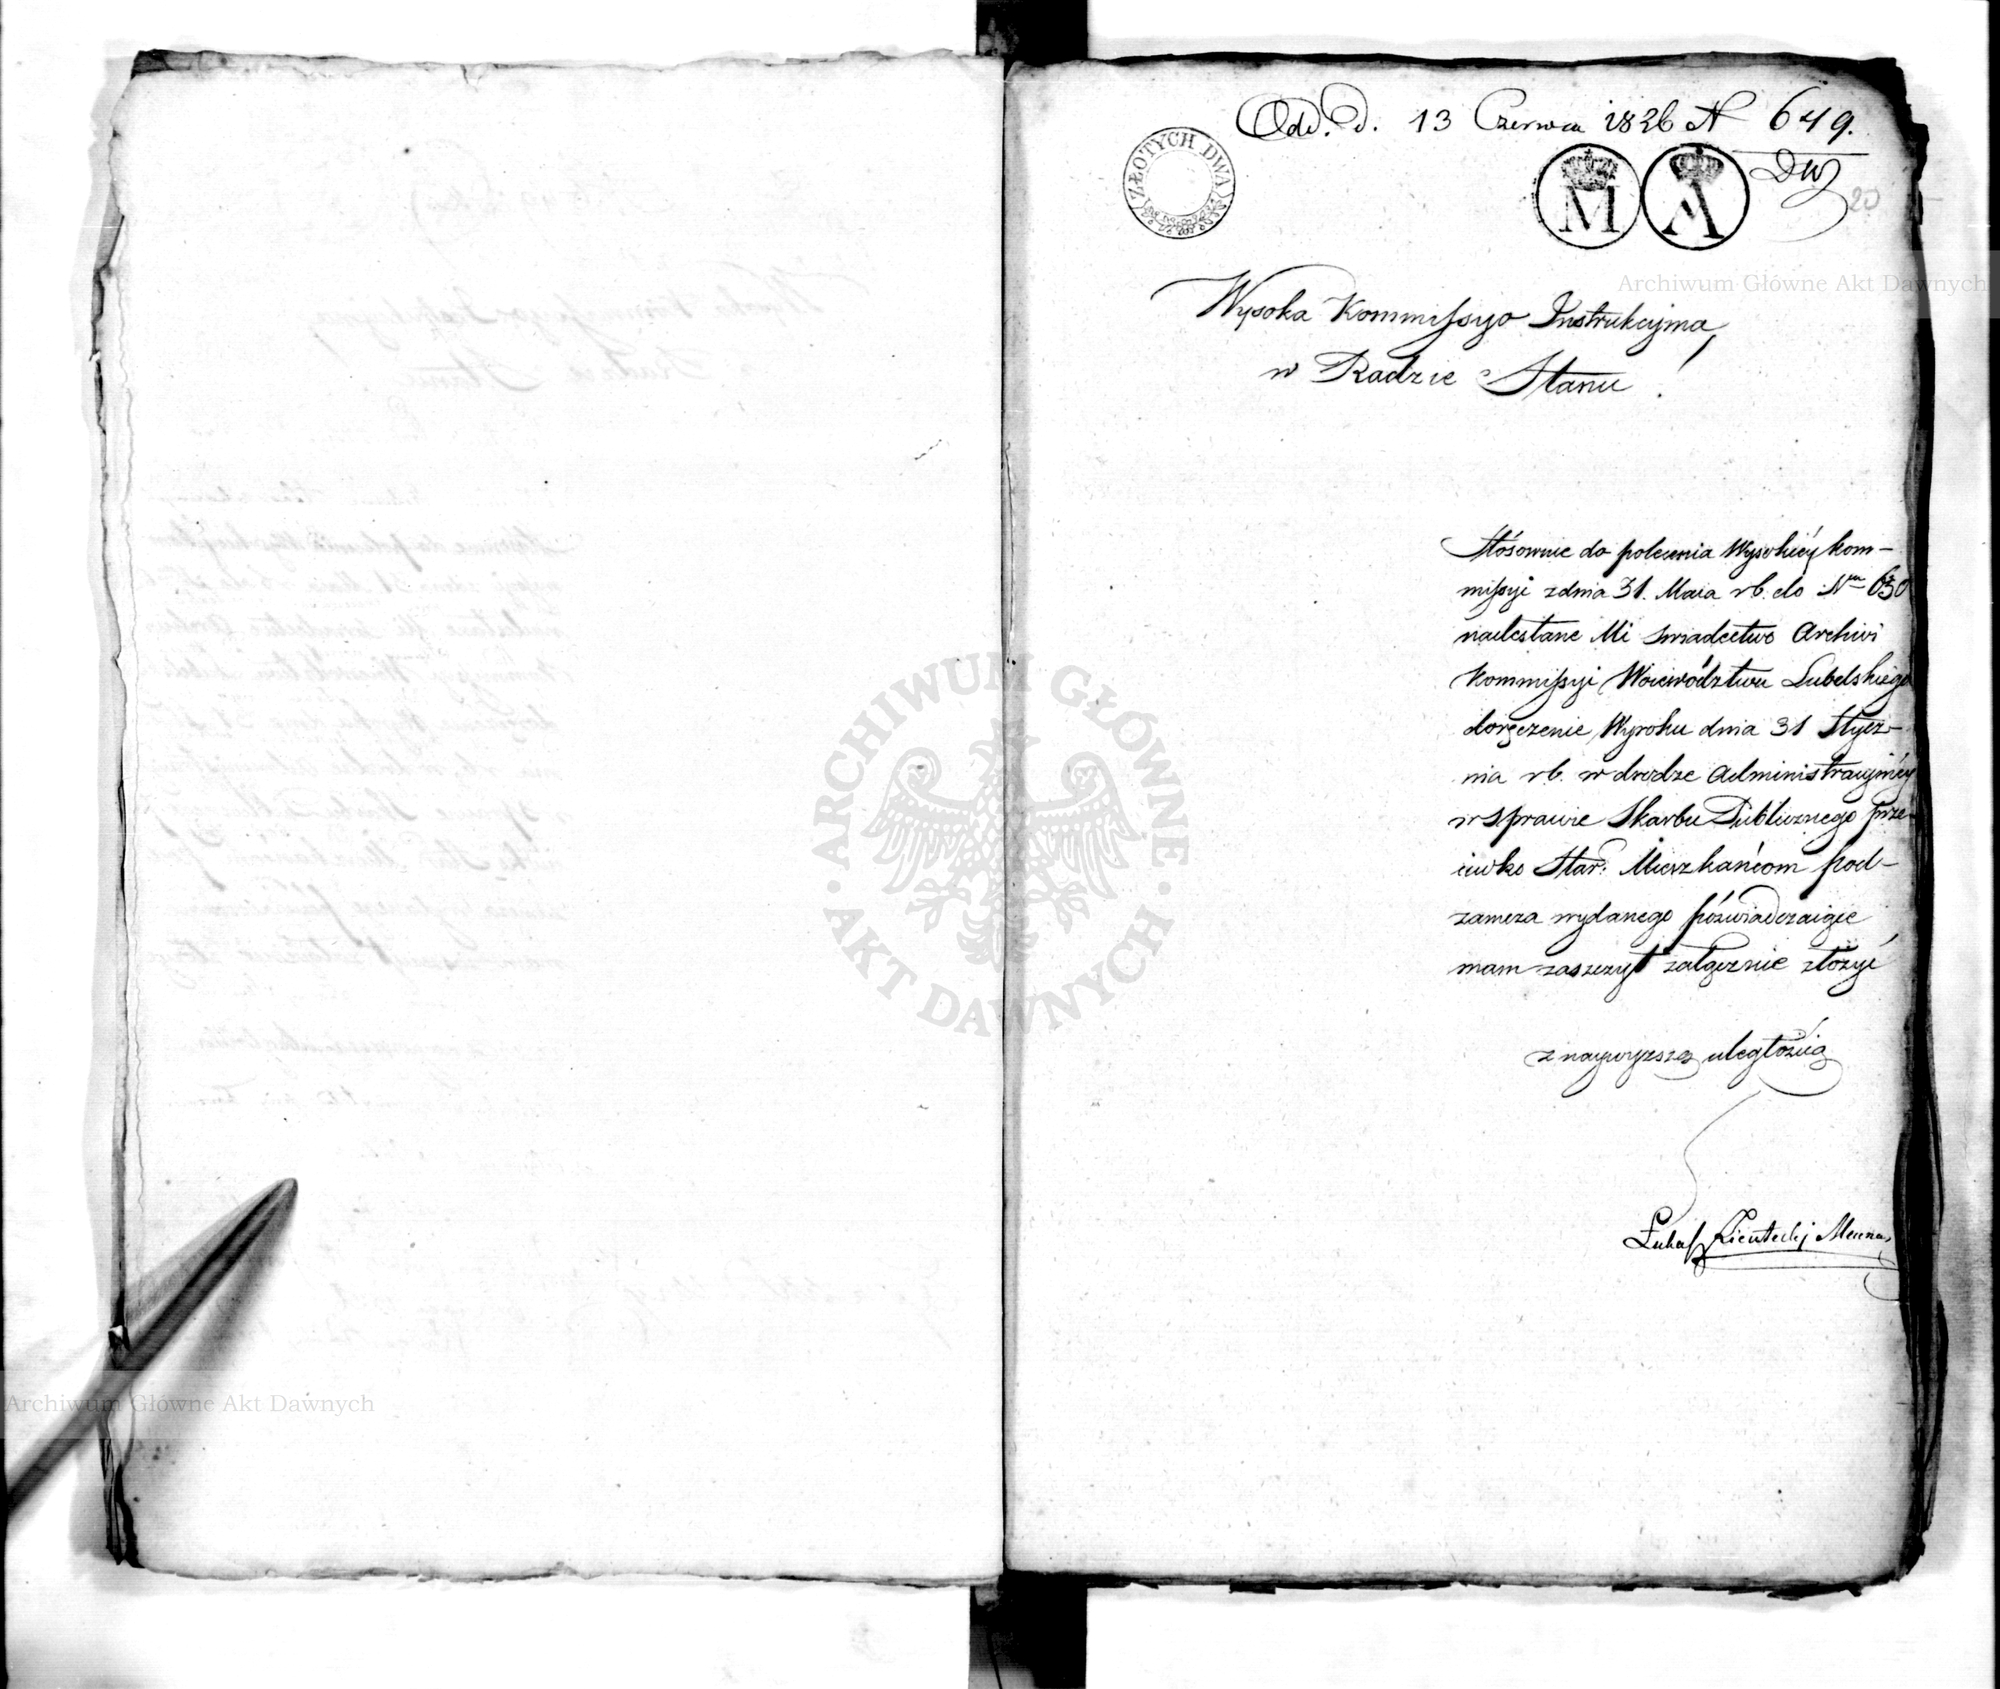 Odd. D. 13 Czerwca 1826 N 649.
ZŁOTYCH DWA
M A
DW
20
Archiwum Główne Akt Dawnych
Wysoka Kommissyo Instrukcyjna
w Radzie Stanu!
Stósownie do polecenia Wysokiéy kom-
missyi z dnia 31. Maia rb. do Nru 630
nadesłane Mi swiadectwo Archiwi
Kommissyi Woiewództwa Lubelskiego
doręczenie Wyroku dnia 31 Stycz-
nia rb. w drodze Administracyinéy
w sprawie Skarbu Publicznego prze-
ciwko Star: Mieszkańcom pod-
zamcza wydanego póświadczaiące
mam zaszczyt załącznie złożyć
z naywyższą uległością
Łukasz Mecenas
ARCHIWUM GŁÓWNE AKT DAWNYCH
Archiwum Główne Akt Dawnych